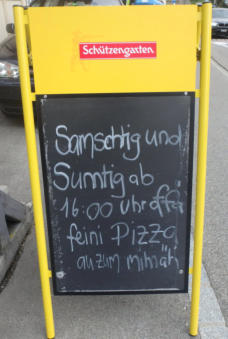 Schützengarten
Samschtig und
Sunntig ab
16:00 Uhr offe
feini Pizza
au zum mitnäh